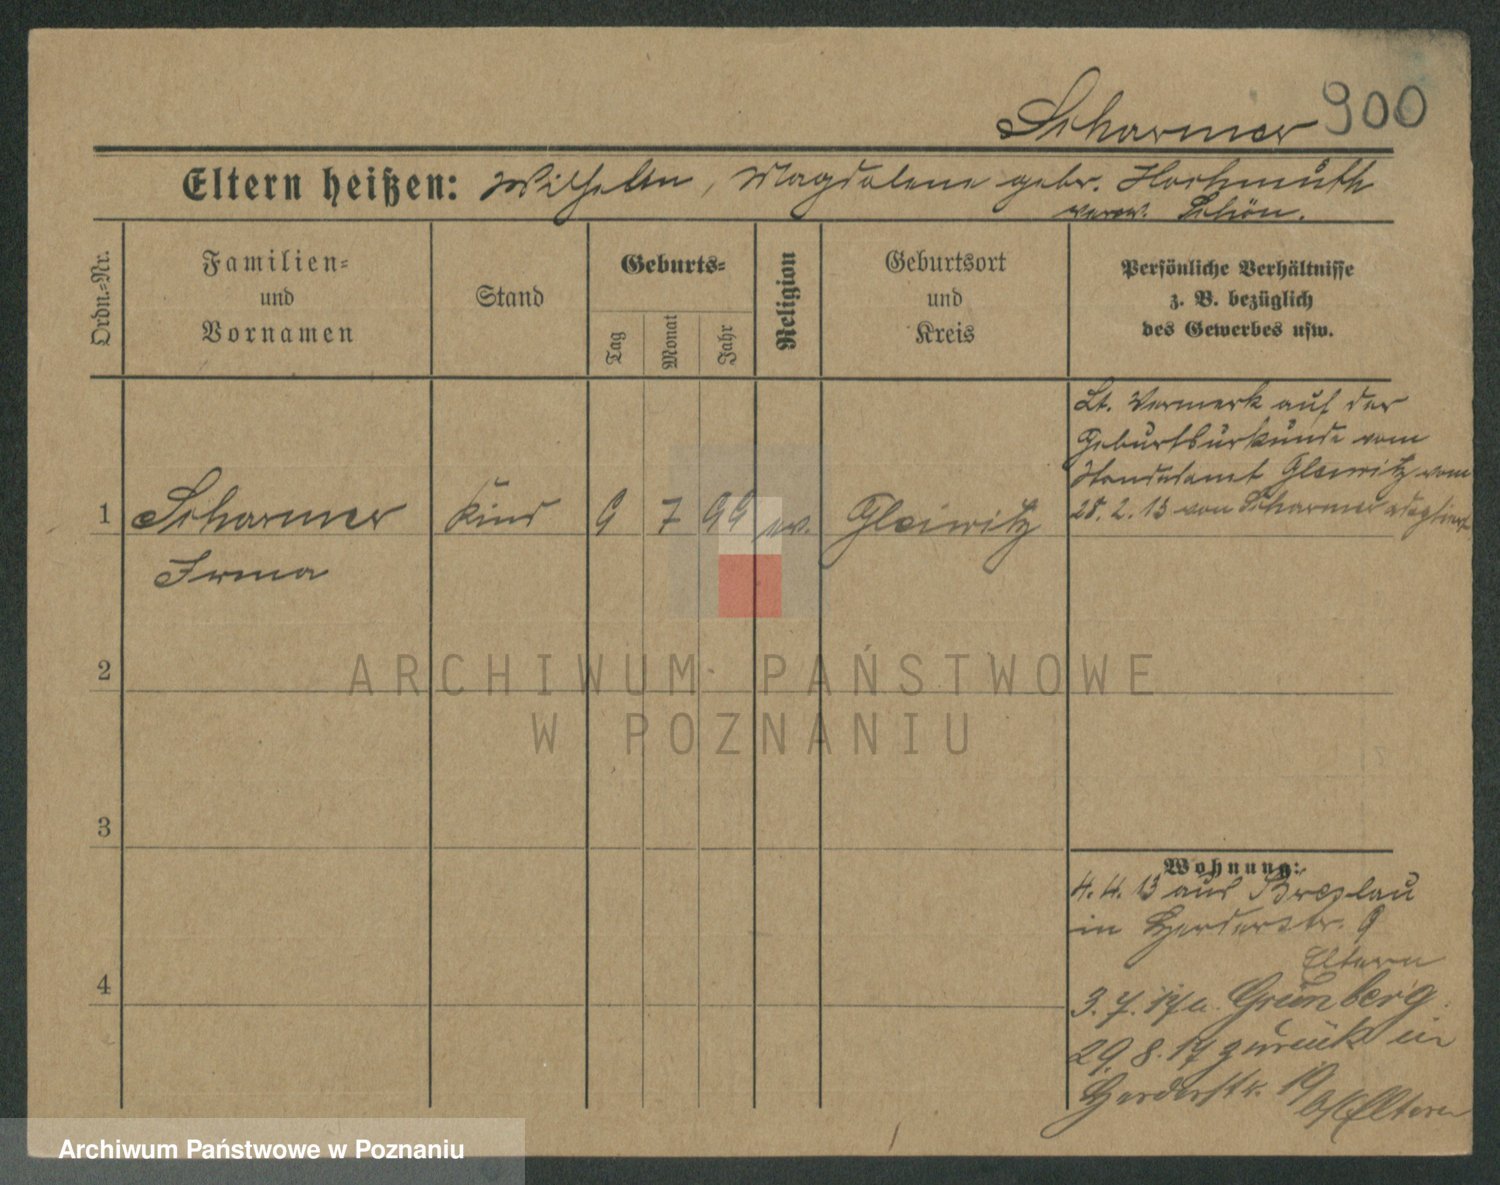 Scharmer 900
Eltern heißen: Wilhelm, Magdalene gebr. Hochmuth
verw. Schön.
Ordn.-Nr.
Familien-
und
Vornamen
Stand
Geburts-
Tag
Monat
Jahr
Religion
Geburtsort
und
Kreis
Persönliche Verhältnisse
z. B. bezüglich
des Gewerbes usw.
Lt. Vermerk auf der
Geburtsurkunde vom
Standesamt Gleiwitz vom
28. 2. 13 von Scharmer adoptiert
1 Scharmer Kind 9 7 99 ev. Gleiwitz
Irma
2
3
4
Wohnung:
4. 4. 13 aus Breslau
in Herderstr. 9
Eltern
3. 7. 17 n. Grünberg
29. 8. 17 zurück in
Herderstr. 19
b/ Eltern
ARCHIWUM PAŃSTWOWE
W POZNANIU
Archiwum Państwowe w Poznaniu